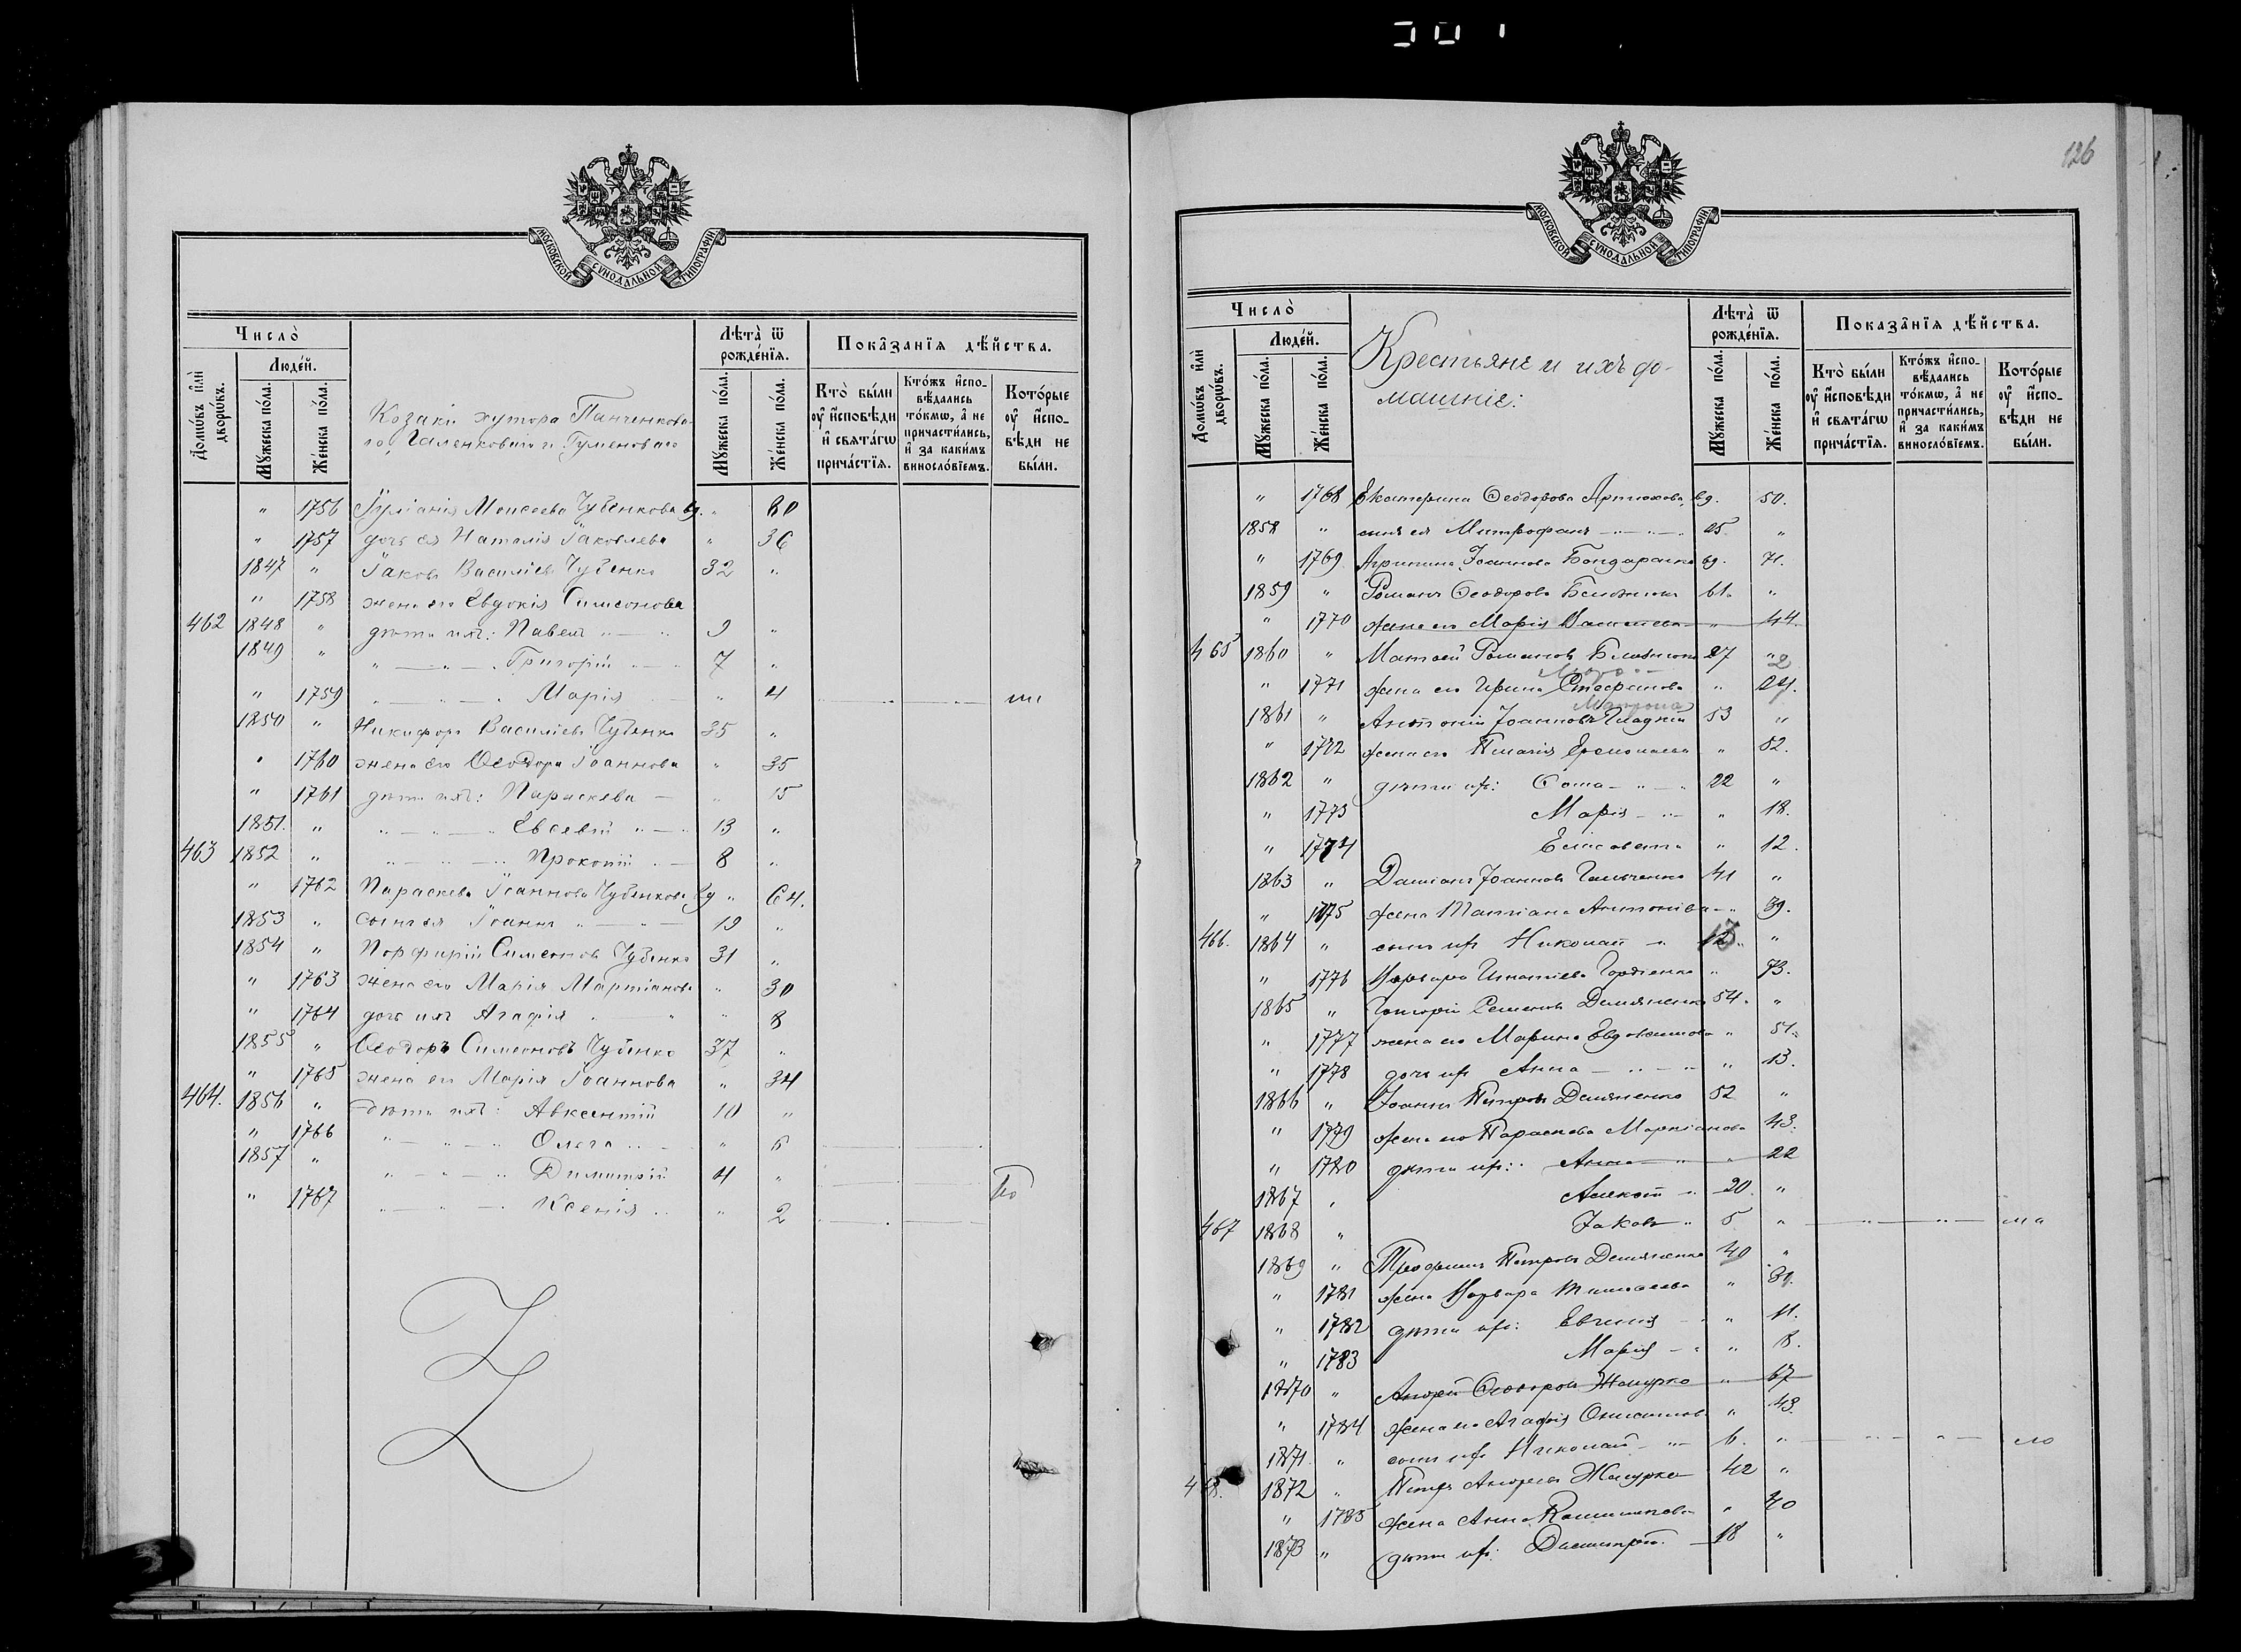 126
МОСКОВСКОЙ СѴНОДАЛЬНОЙ ТИПОГРАФІИ
Число̀
Людє́й.
Домѡ́въ и҆лѝ дворѡ́въ.
Мꙋ́жеска по́ла.
Же́нска по́ла.
Козаки хутора Панченкова-
го, Галенковскаго и Гуменоваго
Лѣ́та ѿ рождє́нїѧ.
Мꙋ́жеска по́ла.
Же́нска по́ла.
Показа̑нїѧ дѣ́йства.
Кто̀ бы́ли ᲂу҆ и҆сповѣди и҆ свѧта́гѡ прича́стїѧ.
Кто́жъ и҆спо-вѣдались то́кмѡ, а҆ не причасти́лись, и҆ за каки́мъ винослові́емъ.
Кото́рые ᲂу҆ и҆спо-вѣди не бы́ли.
" 1756 Іуліанія Моисеева Чубенкова вд. " 80
" 1757 дочь ея Наталія Іаковлева " 36
1847 " Іаковъ Василіевъ Чубенко 32 "
" 1758 жена его Евдокія Симеонова
462 1848 " дѣти ихъ: Павелъ " — " 9 "
1849 " " — " — " Григорій " — " 7 "
" 1759 " — " — " Марія " 4
1850 " Никифоръ Василіевъ Чубенко 35 "
" 1760 жена его Ѳеодора Іоаннова " 35
" 1761 дѣти ихъ: Параскева — " 15
1851. " " — " — " Евсевій " — " 13 "
463 1852 " " — " — " Прокопій " — 8 "
" 1762 Параскева Іоаннова Чубенкова вд " 64.
1853 " сынъ ея Іоаннъ " — " — 19 "
1854 " Порфирій Симеоновъ Чубенко 31 "
" 1763 жена его Марія Мартіанова " 30
" 1764 дочь ихъ Агафія " — " " 8
1855 " Ѳеодоръ Симеоновъ Чубенко 37 "
" 1765 жена его Марія Іоаннова " 34
464. 1856 " дѣти ихъ: Авксентій 10 "
" 1766 " — " — " Ольга " — " 6
1857 " " — " — " Димитрій 4 "
" 1767 " — " — " Ксенія " " 2
МОСКОВСКОЙ СѴНОДАЛЬНОЙ ТИПОГРАФІИ
Число̀
Людє́й.
Домѡ́въ и҆лѝ дворѡ́въ.
Мꙋ́жеска по́ла.
Же́нска по́ла.
Крестьяне и ихъ до-
машніе:
Лѣ́та ѿ рождє́нїѧ.
Мꙋ́жеска по́ла.
Же́нска по́ла.
Показа̑нїѧ дѣ́йства.
Кто̀ бы́ли ᲂу҆ и҆сповѣди и҆ свѧта́гѡ прича́стїѧ.
Кто́жъ и҆спо-вѣдались то́кмѡ, а҆ не причасти́лись, и҆ за каки́мъ винослові́емъ.
Кото́рые ᲂу҆ и҆спо-вѣди не бы́ли.
" 1768 Екатерина Ѳеодорова Артюхова, вд. 50.
1858 " сынъ ея Митрофанъ — " — " 25. "
" 1769. Агрипина Іоаннова Бондаренко вд. 71.
1859 " Романъ Ѳеодоровъ 61. "
" 1770 жена его Марія Васильева " 44.
465 1860 " Матвей Романовъ 27 "
" 1771 жена его Ирина Стефанова " 24.
Матрона
1861 " Антоній Іоанновъ Гладкій 53 "
" 1772 жена его Пелагія Ермолаева " 52.
1862 " дѣти ихъ: Ѳома — " — " 22 "
" 1773 Марія — " — " 18.
" 1774 Елисавета " 12.
1863 " Даміанъ Іоанновъ Гальченко 41 "
" 1775 жена Татіана Антоніева — " 39.
466. 1864 " сынъ ихъ Николай " "
" 1776 Варвара Игнатіева Гордіенко " 73.
1865 " Григорій Семеновъ Демяненко 54. "
" 1777 жена его Марина Евдокимова " 51.
" 1778 дочь ихъ Анна — " — " " 13.
1866 " Іоаннъ Петровъ Демяненко 52 "
" 1779 жена его Параскева Маркіанова 43.
" 1780 дѣти ихъ: Анна " " 22
1867 " Алексѣй " 20. "
467 1868 " Іаковъ " 5 "
1869 " Трофимъ Петровъ Демяненко 40 "
" 1781 жена Варвара Тимофеева " 31.
" 1782 дѣти ихъ: Евгенія " 11.
" 1783 Марія — " " 8.
1870 " Андрей Ѳеодоровъ Жмурко " 67
" 1784 жена его Агафія Онисимова " 43.
1871 " сынъ ихъ Николай — " — 6. "
468. 1872 " Петръ Андреевъ Жмурко 42 "
" 1785 жена Анна " 40
1873 " дѣти ихъ: Димитрій. 18 "